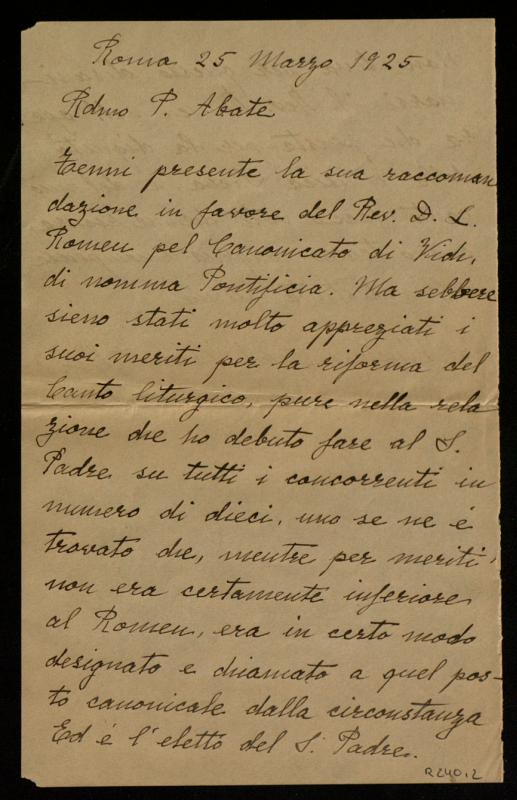 Roma 25 Marzo 1925
Rdmo P. Abate
Tenni presente la sua raccoman
dazione in favore del Rev. D. L.
Romeu pel Canonicato di Vich,
di nomma Pontificia. Ma sebbene
sieno stati molto appreziati i
suoi meriti per la riforma del
Canto liturgico, pure nella rela
zione che ho debuto fare al S.
Padre su tutti i concorrenti in
numero di dieci, uno se ne é
trovato che, mentre per meriti
non era certamente inferiore
al Romeu, era in certo modo
designato e chiamato a quel pos-
to canonicale dalla circonstanza
Ed é l'eletto del S. Padre.
R240,2